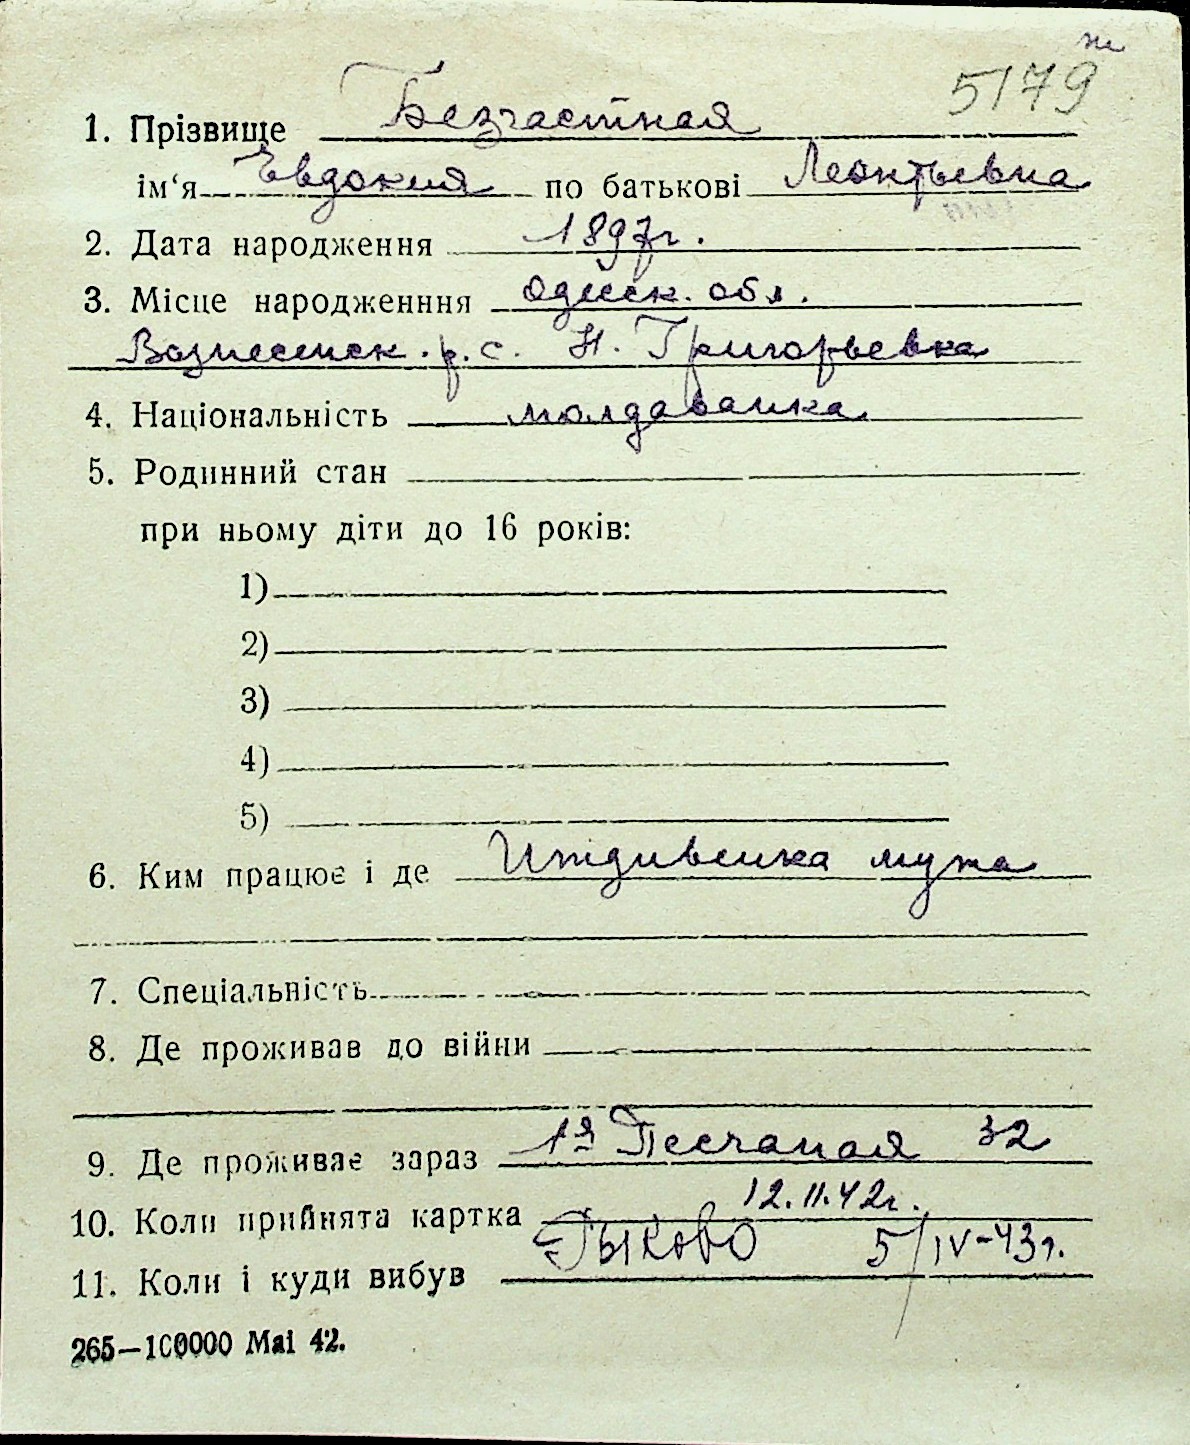 5179
1. Прізвище Безчастная
ім‘я Евдокия по батькові Леонтьевна
2. Дата народження 1897г.
3. Місце народженння Одесск. обл.
Вознесенск. р. с. Н. Григорьевка
4. Національність молдаванка
5. Родинний стан
при ньому діти до 16 років:
1)
2)
3)
4)
5)
6. Ким працює і де Иждивенка мужа
7. Спеціальність
8. Де проживав до війни
9. Де проживає зараз 1я Песчаная 32
10. Коли прийнята картка 12.II.42г.
11. Коли і куди вибув Рыково 5/IV-43г.
265—100000 Mai 42.